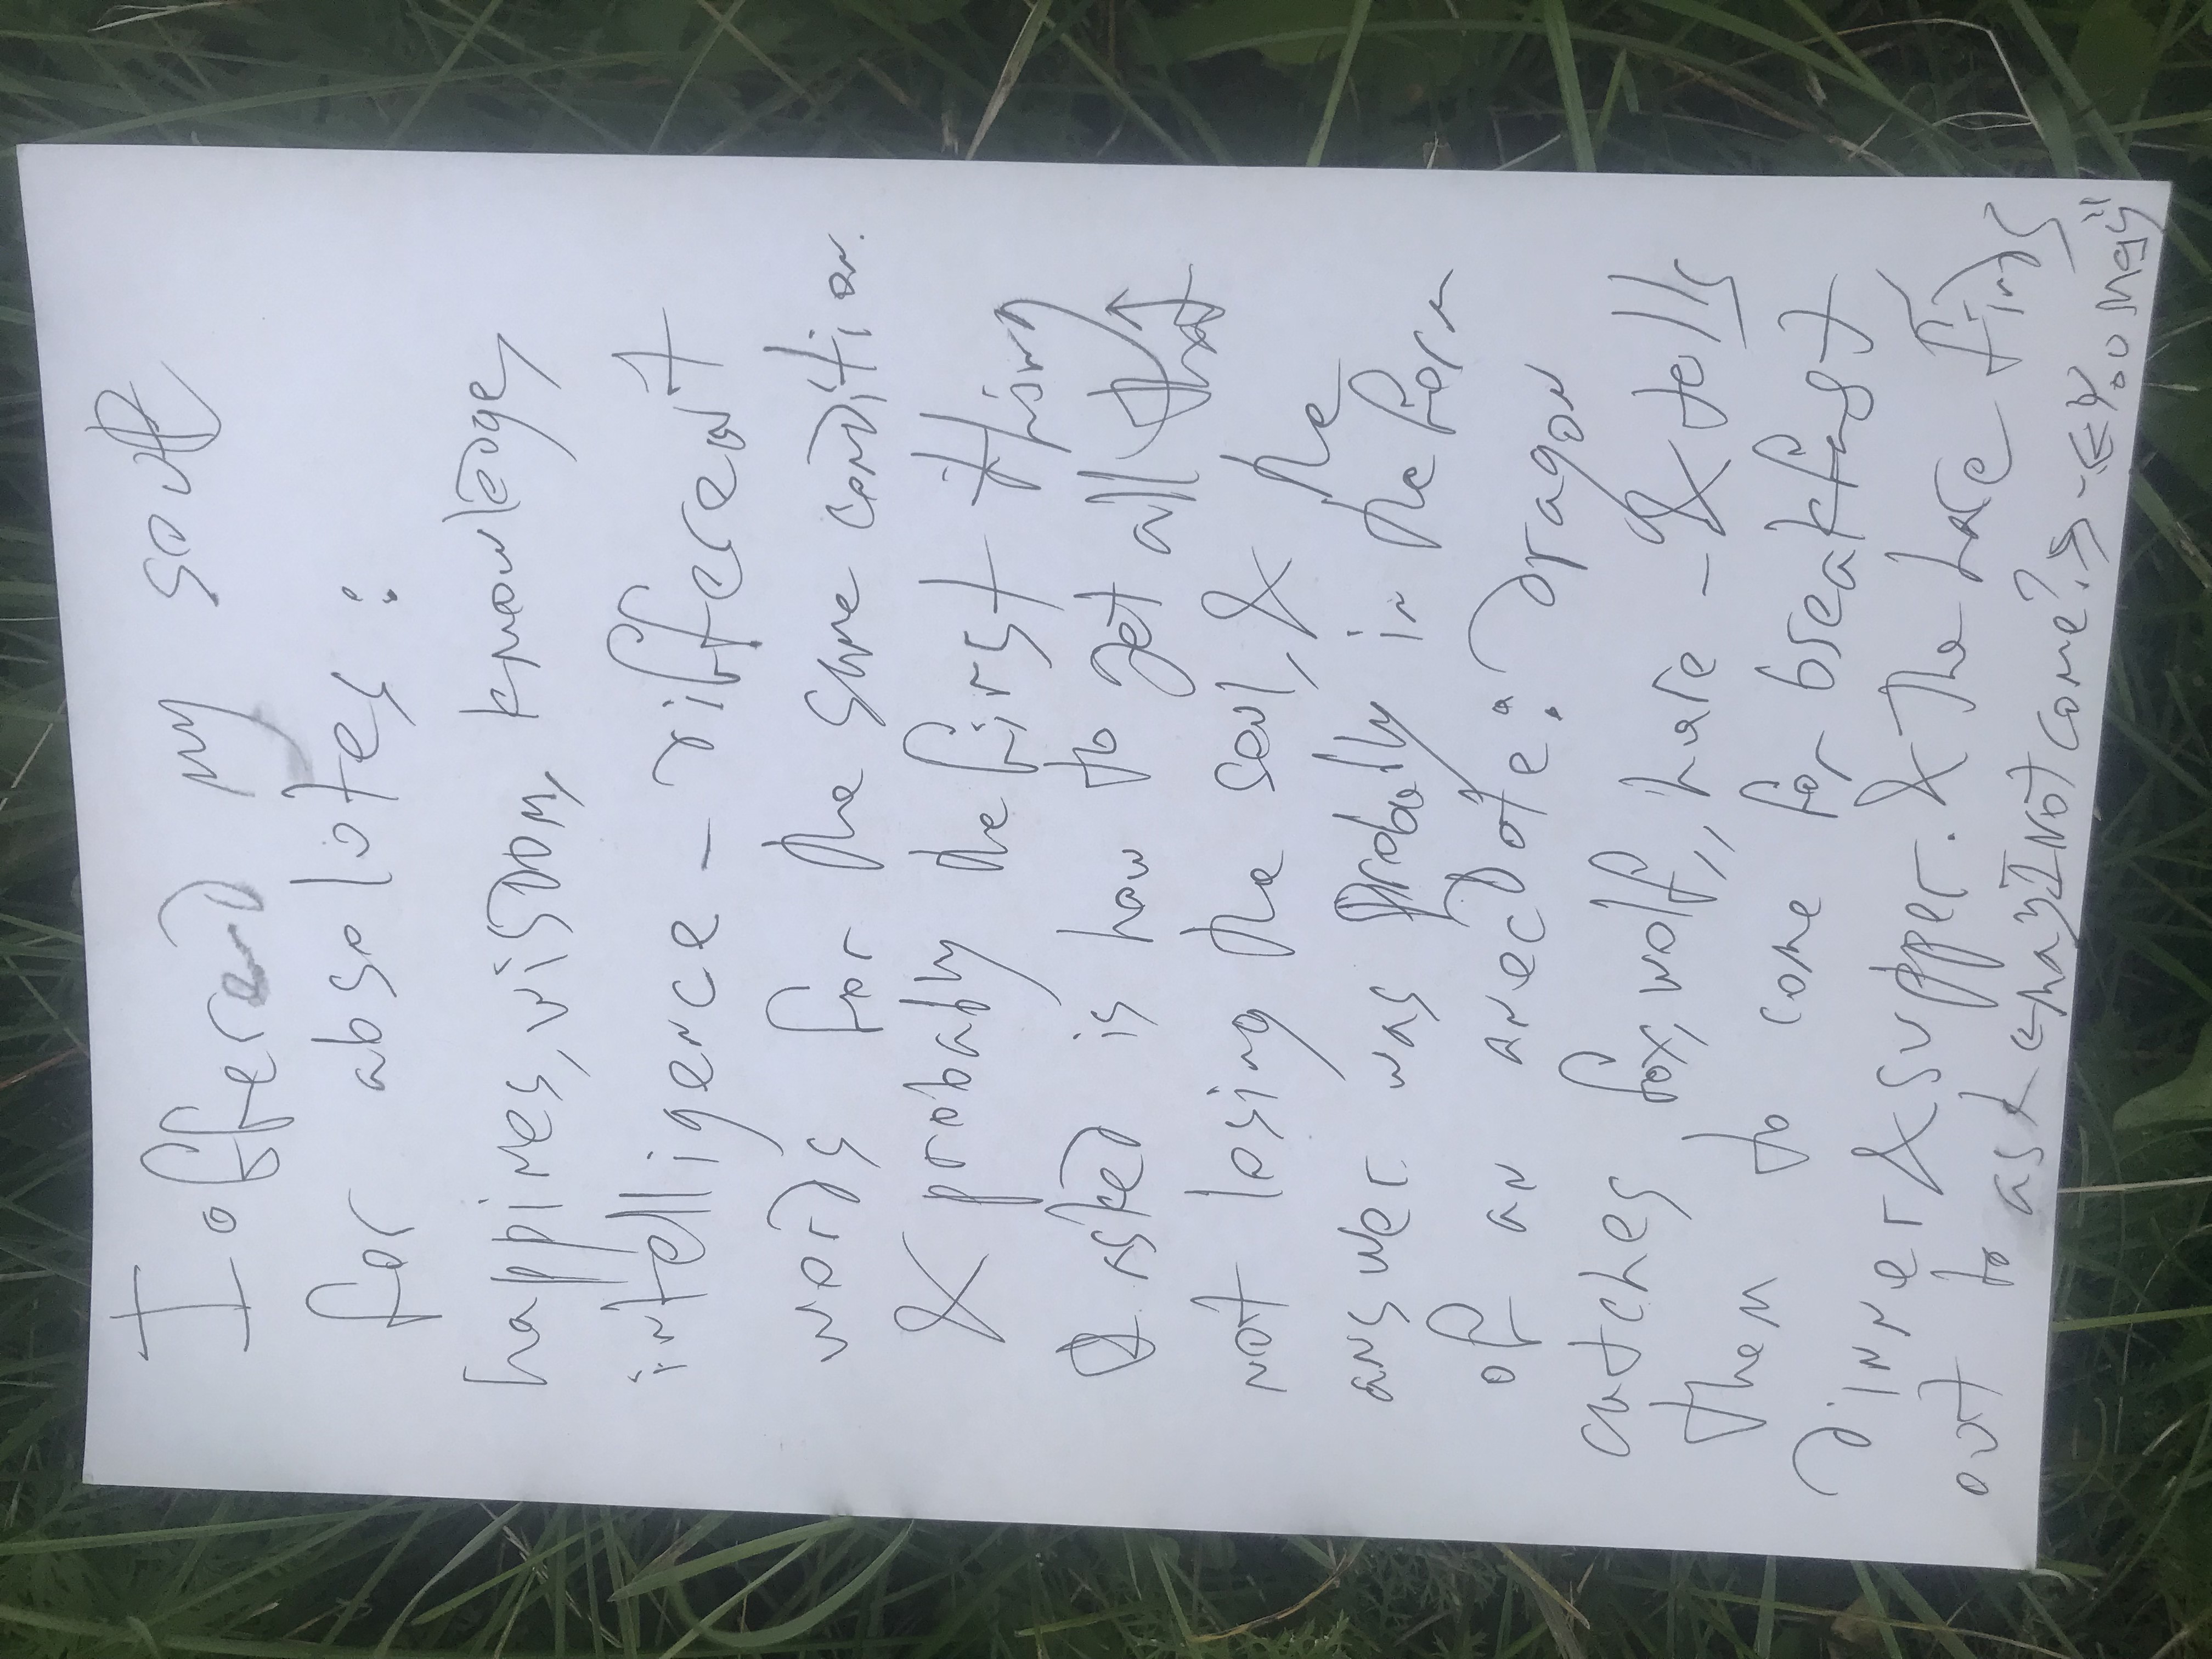 I offered my soul
for absolutes:
happines, wisdom, knowledge,
intelligence – different
words for the same condition.
& probably the first thing
I asked is how to get all that
not losing the soul, & the
answer was probably in the form
of an anecdote: dragon
catches fox, wolf,, hare – & tells
them to come for breakfast,
dinner & supper. & the hare finds
out to ask «may I not come?» – «You may"